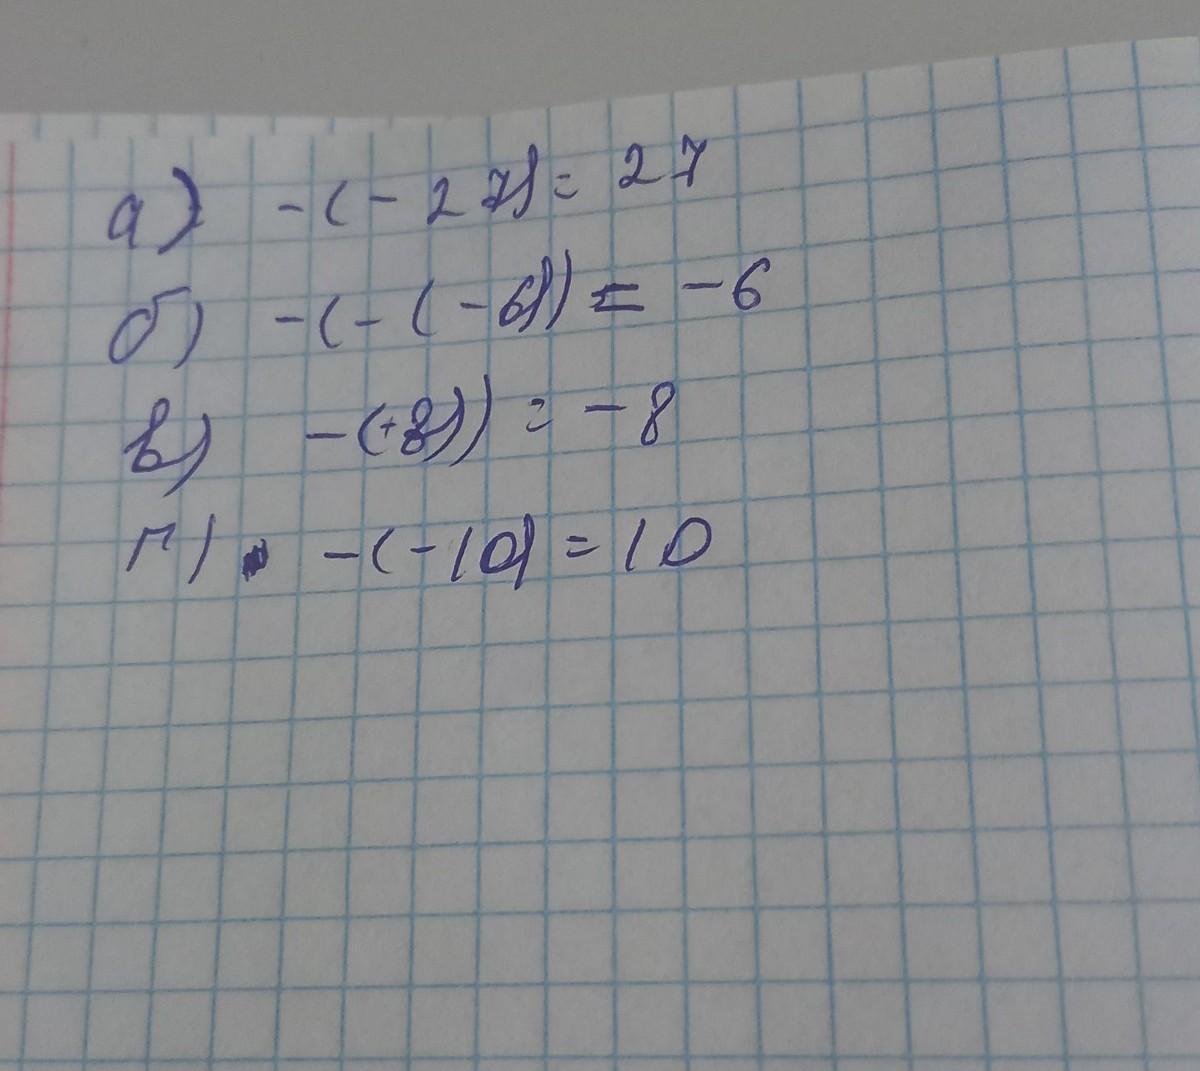 а) -(-27)= 27
б) -(-(-6))= -6
в) -(+8)) = -8
г) -(-10)=10